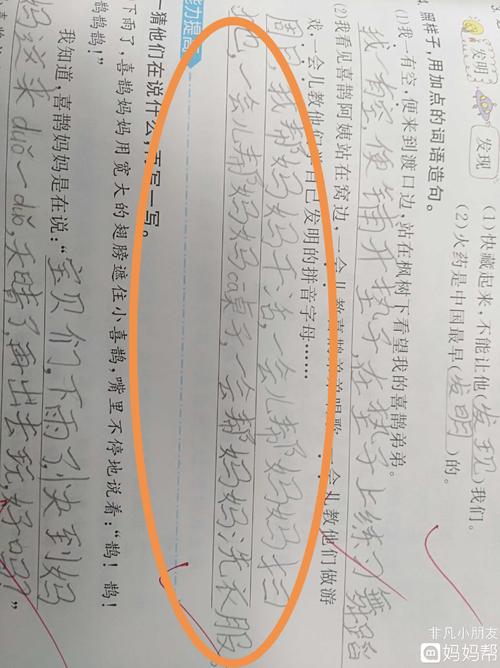 发明 发现
(1)快藏起来,不能让他(发现)我们。
(2)火药是中国最早(发明)的。
4. 照样子,用加点的词语造句。
(1)我一有空,便来到渡口边,站在枫树下看望我的喜鹊弟弟。
我一有空,便铺开垫子,在垫子上练习舞蹈
(2)我看见喜鹊阿姨站在窝边,一会儿教喜鹊弟弟唱歌,一会儿教他们做游
戏,一会儿教他们学自己发明的拼音字母……
周日,我帮妈妈干活,一会儿帮妈妈扫
地,一会儿帮妈妈ca桌子,一会帮妈妈洗衣服
能力提高
猜一猜他们在说什么,再写一写。
下雨了,喜鹊妈妈用宽大的翅膀遮住小喜鹊,嘴里不停地说着:“鹊!鹊!
鹊鹊鹊!”
我知道,喜鹊妈妈是在说:“宝贝们,下雨了,快到妈
妈这来duǒ一duǒ,天晴了,再出去玩,好吗?”
非凡小朋友
妈妈帮